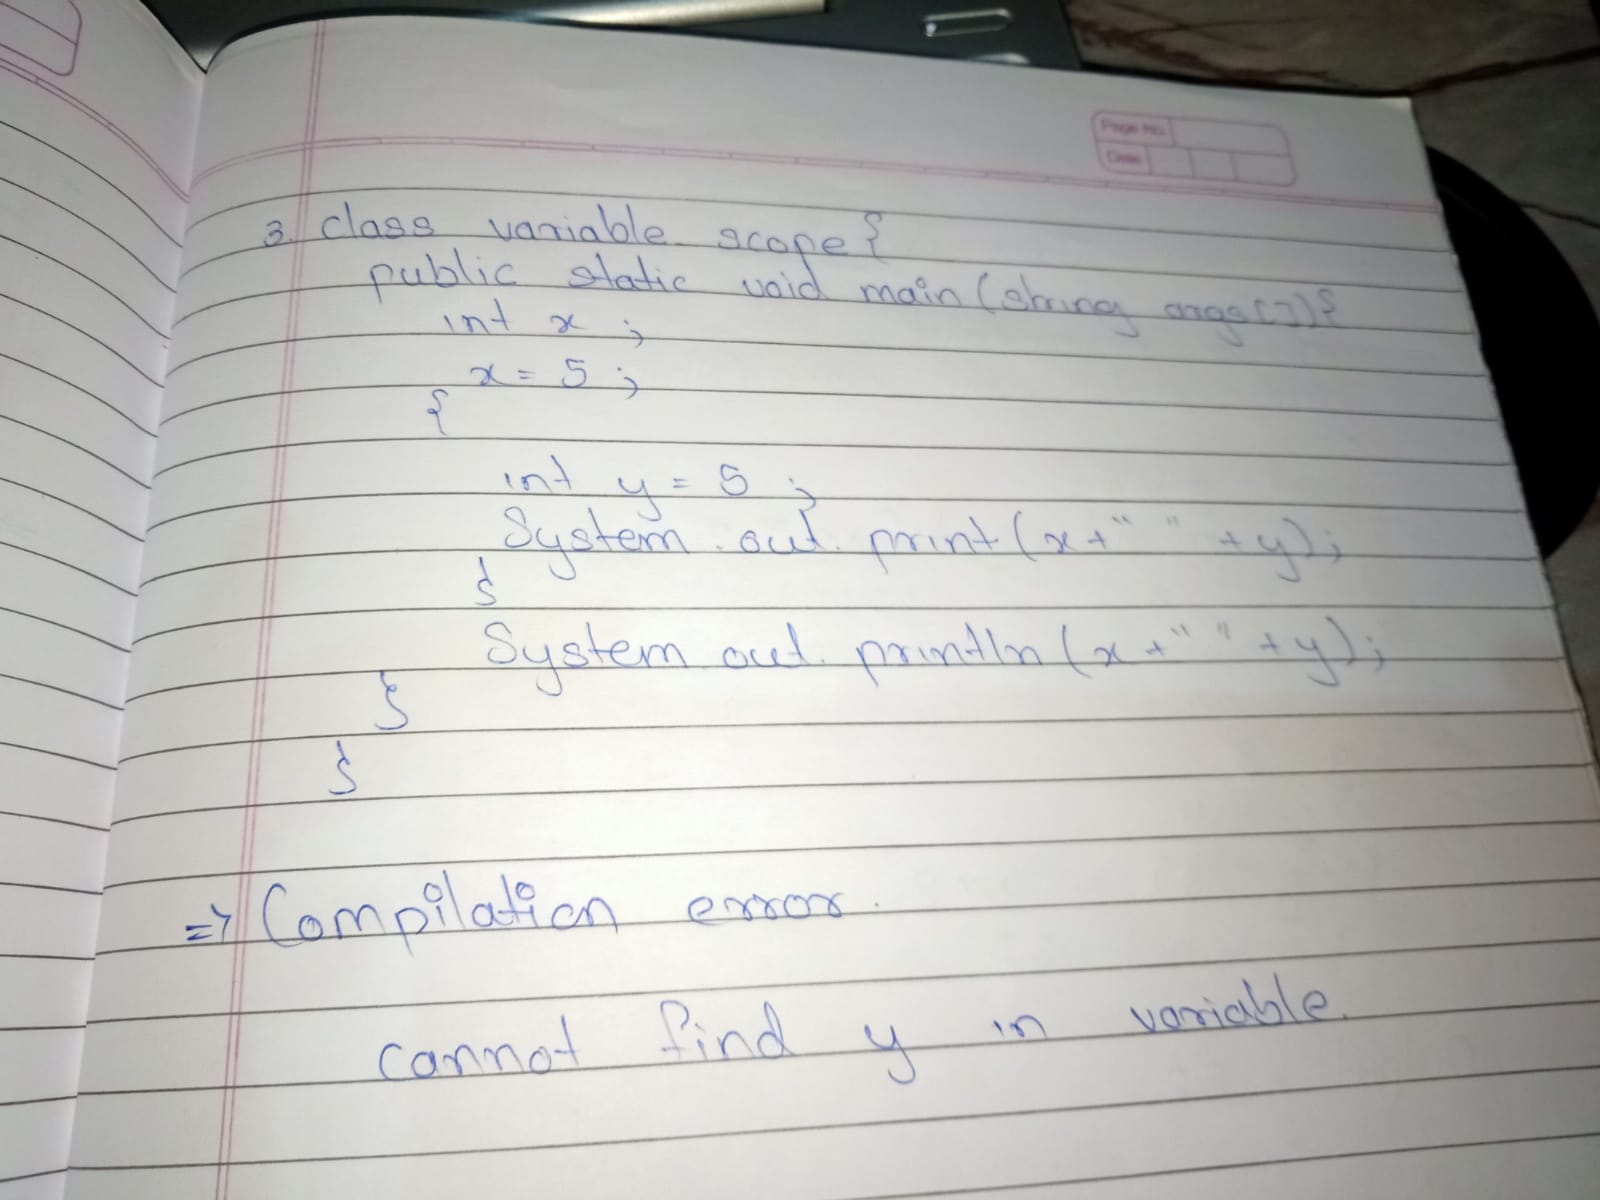 Page No.
Date
3. class variable scope {
public static void main (string args[]) {
int x ;
x = 5 ;
{
int y = 5 ;
System . out . print ( x + " " + y ) ;
}
System . out . println ( x + " " + y ) ;
}
}
=> Compilation error .
cannot find y in variable .